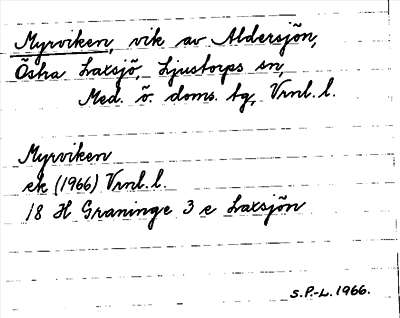 Myrviken, vik av Aldersjön,
Östra Laxsjö, Ljustorps sn,
Med. ö. doms. tg, Vrnl. l.
Myrviken
ek (1966) Vrnl. l.
18 H Graninge 3 e Laxsjön
S.P.-L. 1966.